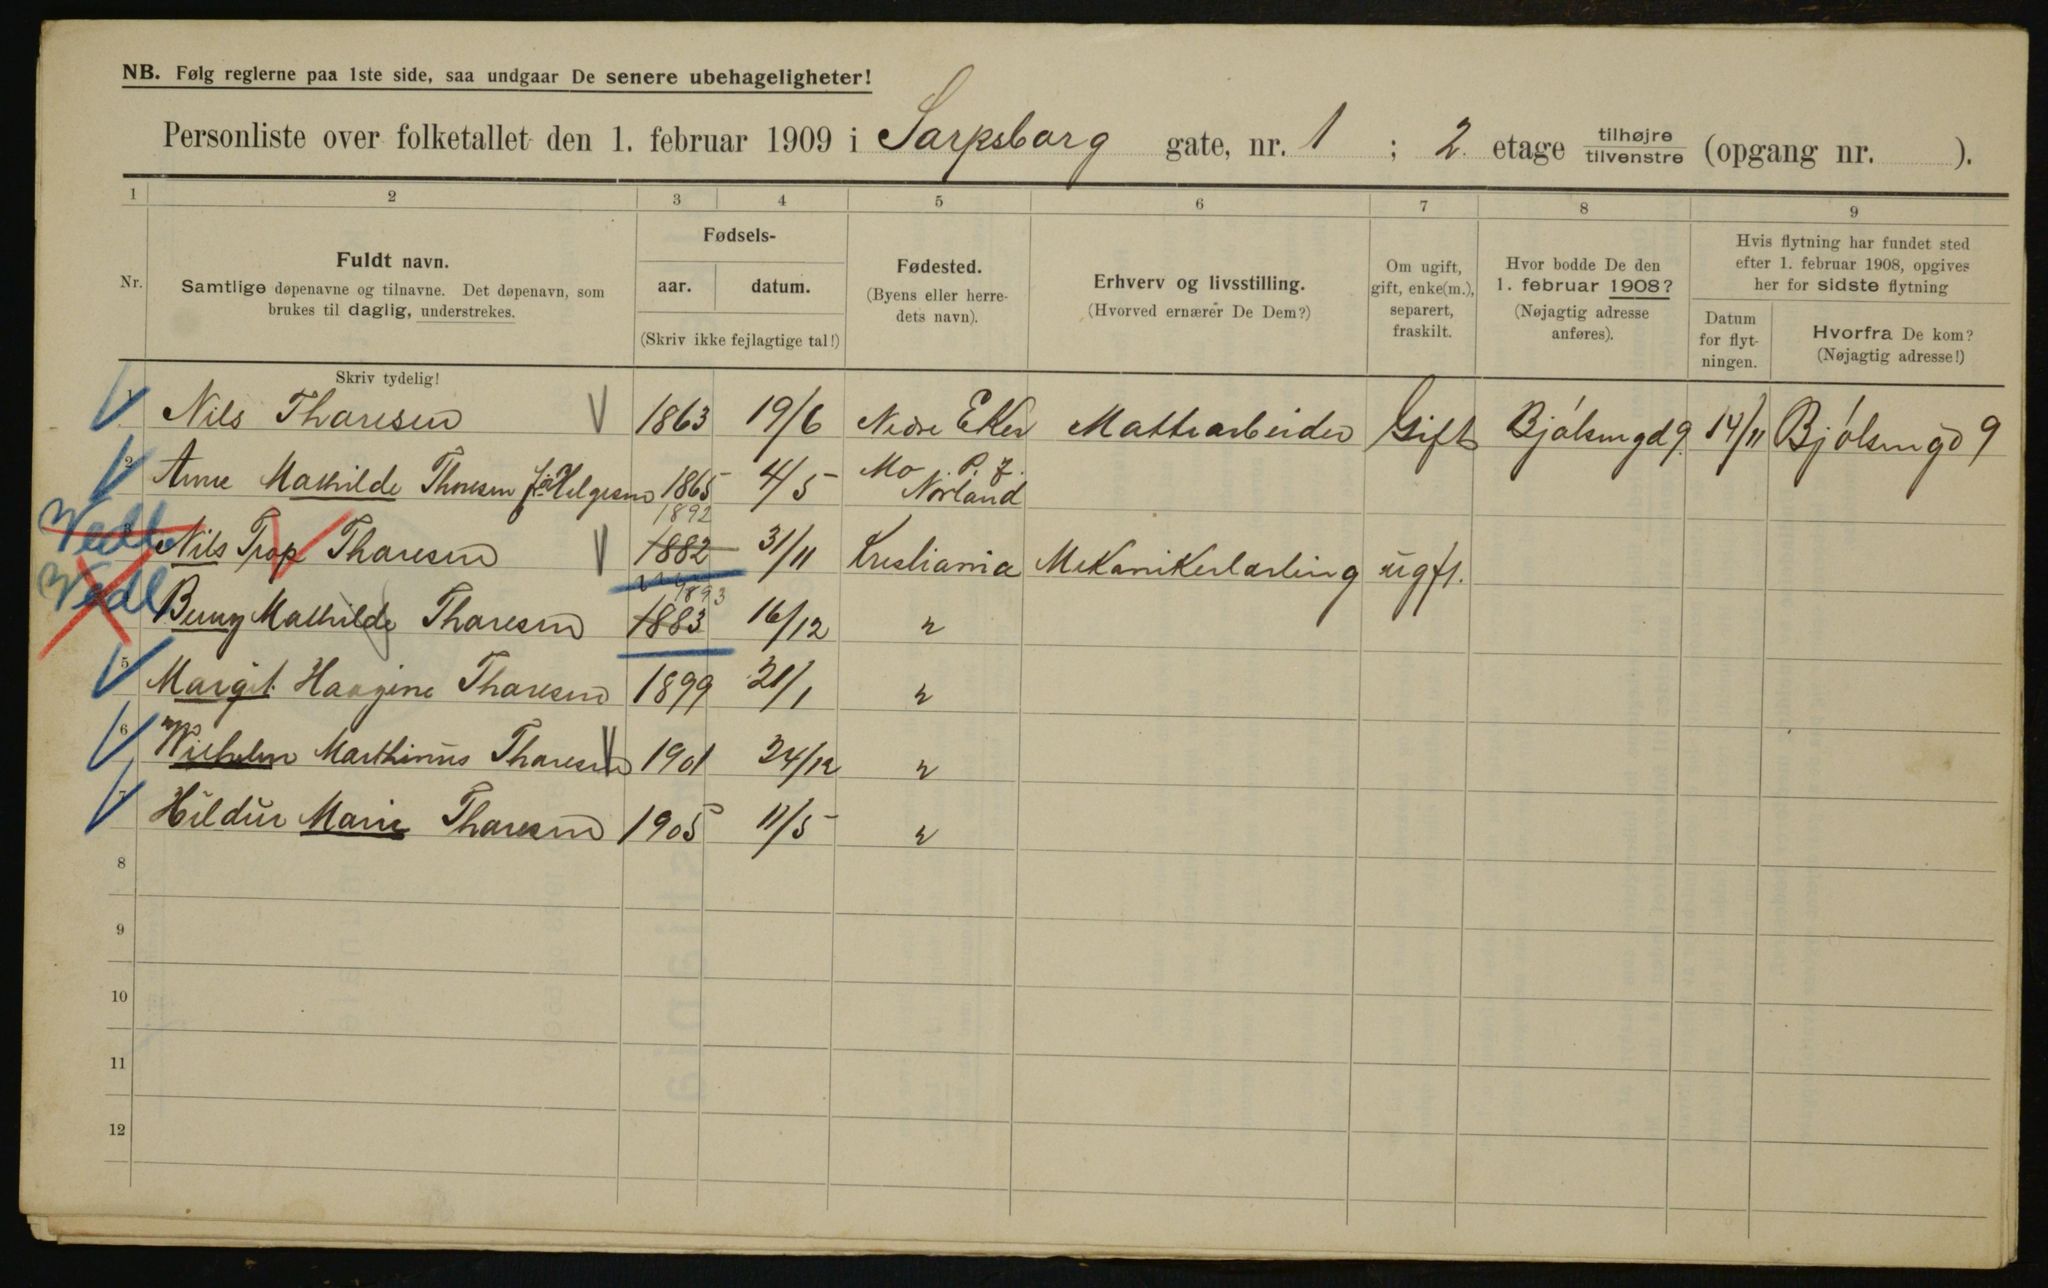 NB. Følg reglerne paa 1ste side, saa undgaar De senere ubehageligheter!
Personliste over folketallet den 1. februar 1909 i Sarpsborg gate, nr. 1 ; 2 etage tilhøjre tilvenstre (opgang nr. ).
1 2 3 4 5 6 7 8 9
Nr.
Fuldt navn.
Samtlige døpenavne og tilnavne. Det døpenavn, som
brukes til daglig, understrekes.
Skriv tydelig!
Fødsels-
aar. datum.
(Skriv ikke fejlagtige tal!)
Fødested.
(Byens eller herre-
dets navn).
Erhverv og livsstilling.
(Hvorved ernærer De Dem?)
Om ugift,
gift, enke(m.),
separert,
fraskilt.
Hvor bodde De den
1. februar 1908?
(Nøjagtig adresse
anføres).
Hvis flytning har fundet sted
efter 1. februar 1908, opgives
her for sidste flytning
Datum
for flyt-
ningen.
Hvorfra De kom?
(Nøjagtig adresse!)
1 Nils Thoresen 1863 19/6 Nedre Eker Gift Bjólsengd 9. 14/11 Bjólsengd 9
2 Anne Mathilde Thoresen f. Helgesen 1865 4/5 Mo P. Norland
Vedl 3 Nils Thoresen 1882 1892 31/11 Kristiania Mekanikerlærling ugft.
Vedl 4 Mathilde Thoresen 1883 1893 16/12 "
5 Margit Haagine Thoresen 1899 21/1 "
6 Wilhelm Marthinus Thoresen 1901 24/12 "
7 Hildur Marie Thoresen 1905 11/5 "
8
9
10
11
12